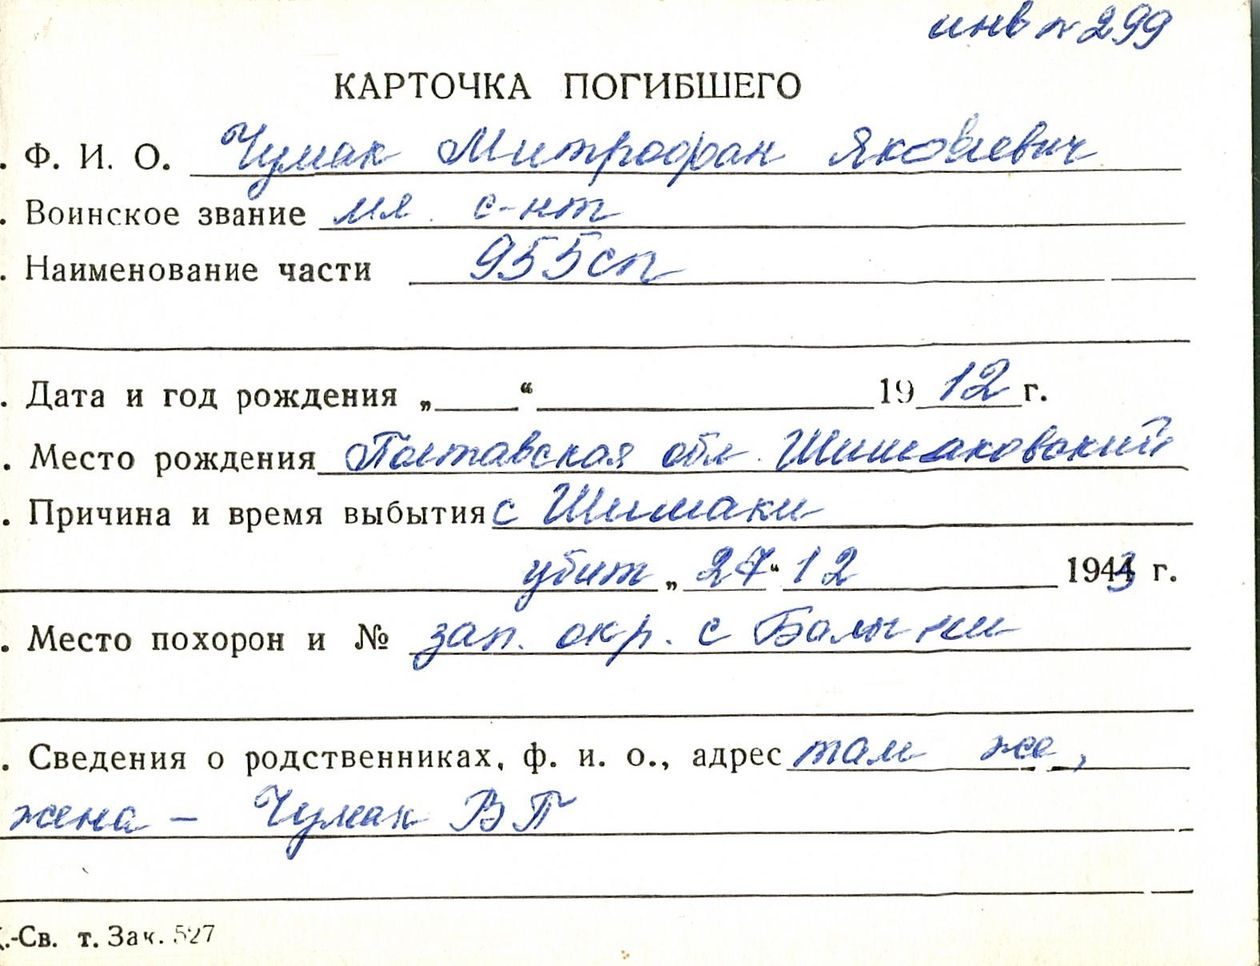 инв № 299
КАРТОЧКА ПОГИБШЕГО
. Ф. И. О. Чумак Митрофан Яковлевич
. Воинское звание мл. с-нт
. Наименование части 955сп
. Дата и год рождения „ “ 1912 г.
. Место рождения Полтавская обл. Шишаковский
. Причина и время выбытия с Шишаки
убит „27“ 12 1943 г.
. Место похорон и № зап. окр. с
. Сведения о родственниках, ф. и. о., адрес там же,
жена – Чумак В П
.-Св. т. Зак. 527